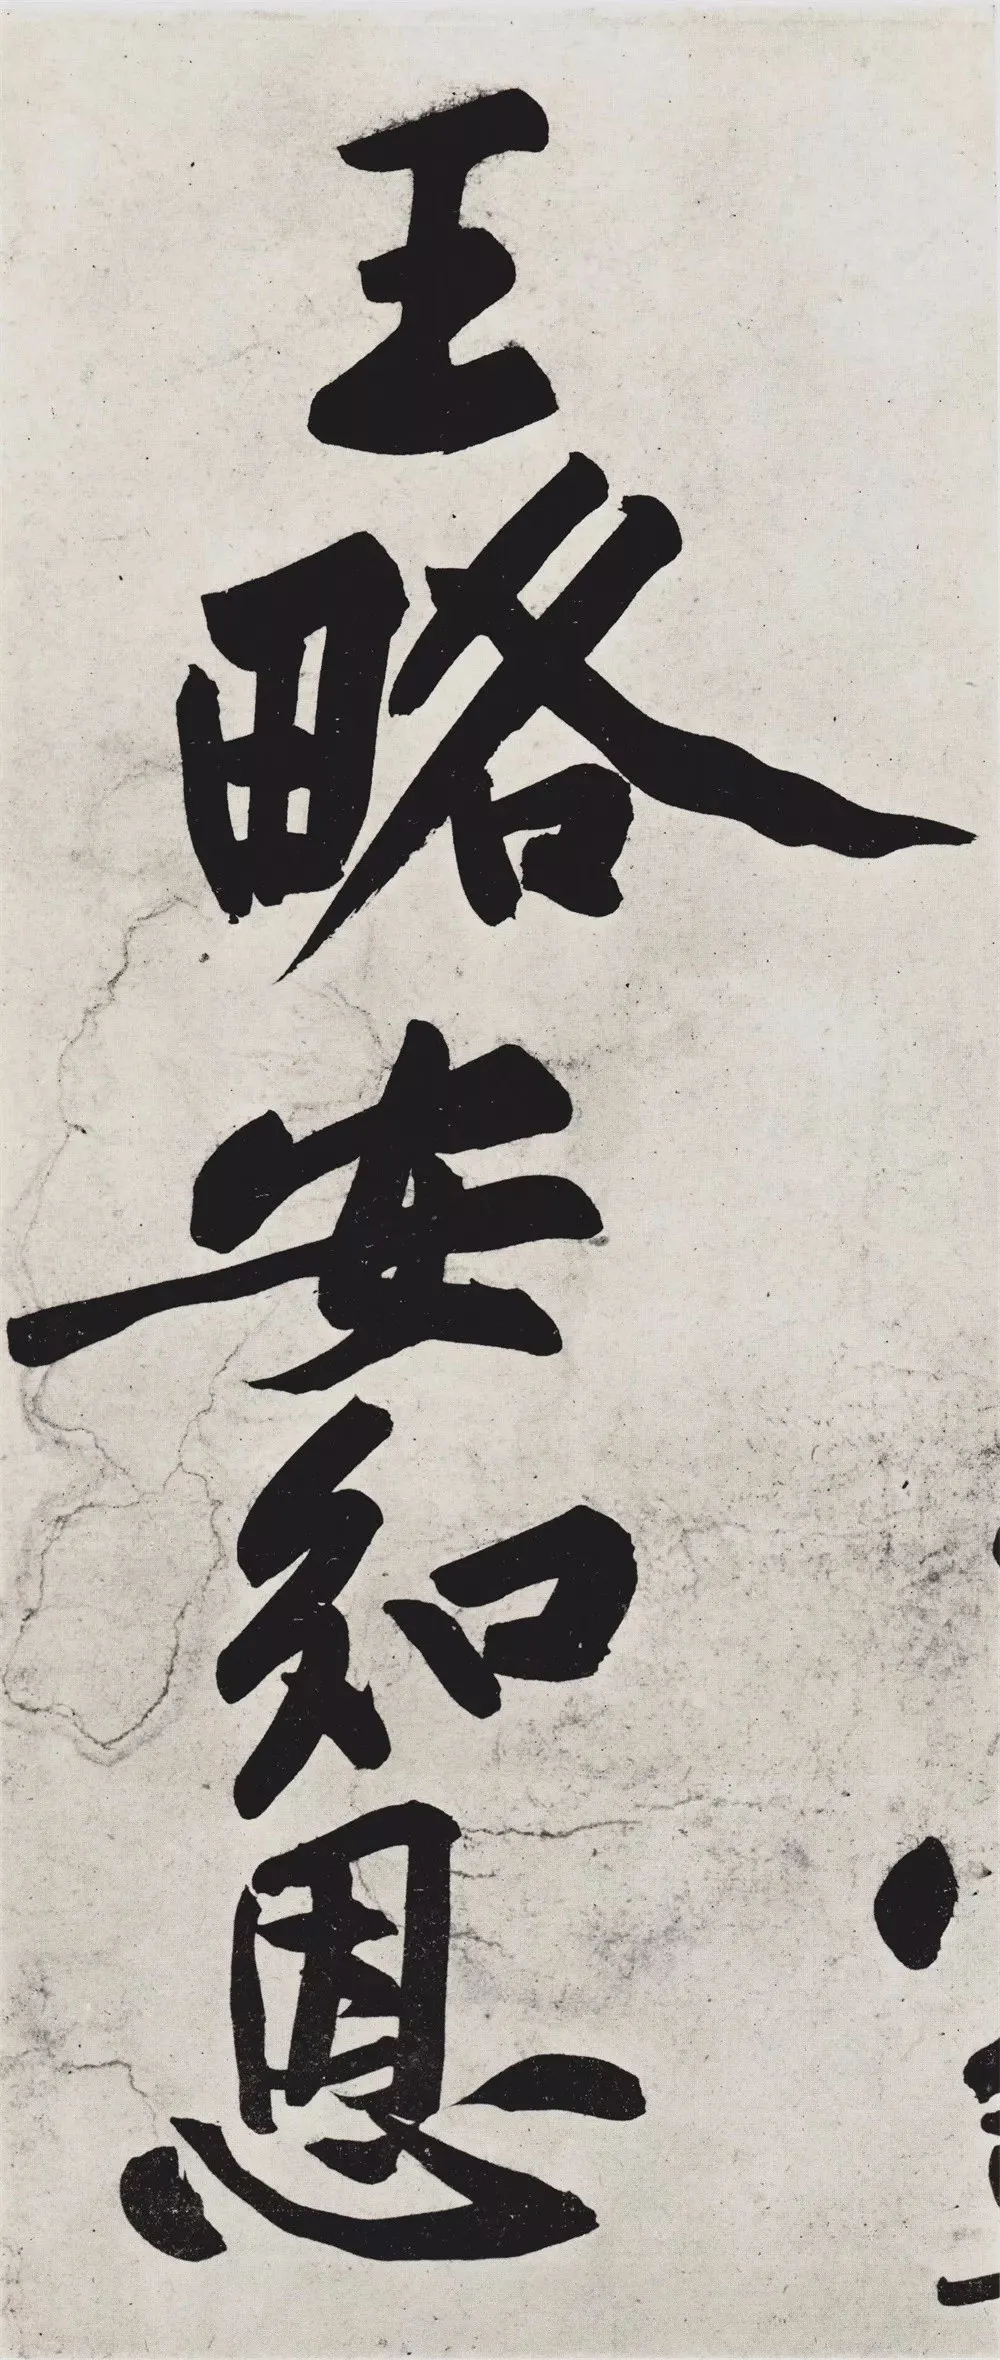 王略安知恩